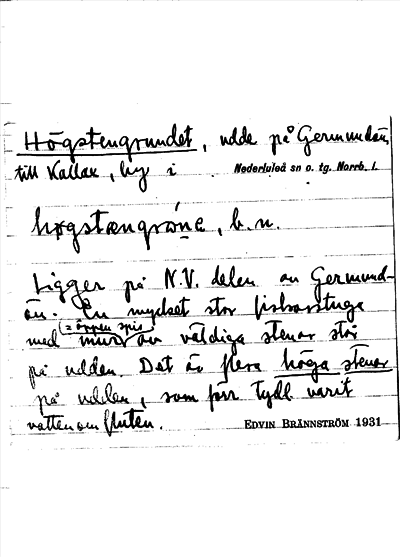 Högstengrundet, udde på Germundön
till Kallax, by i Nederluleå sn o. tg. Norrb. l.
høgstængrɷ́ne, b. n.
Ligger på N.V. delen av Germund-
ön. En mycket stor fiskarstuga
(= öppen spis)
med mur av väldiga stenar står
på udden. Det är flera höga stenar
på udden, som förr tydl. varit
vatten om fluten.
EDVIN BRÄNNSTRÖM 1931